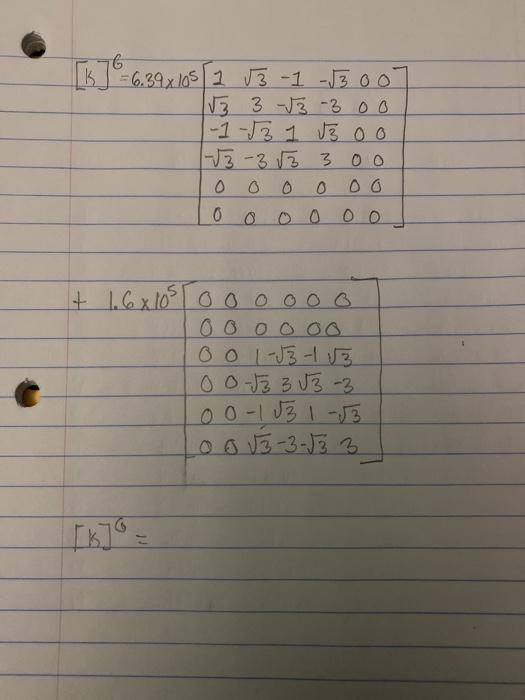 [K]^G = 6.39 x 10^5 [ 1 √3 -1 -√3 0 0
√3 3 -√3 -3 0 0
-1 -√3 1 √3 0 0
-√3 -3 √3 3 0 0
0 0 0 0 0 0
0 0 0 0 0 0 ]
+ 1.6 x 10^5 [ 0 0 0 0 0 0
0 0 0 0 0 0
0 0 1 -√3 -1 √3
0 0 -√3 3 √3 -3
0 0 -1 √3 1 -√3
0 0 √3 -3 -√3 3 ]
[K]^G =